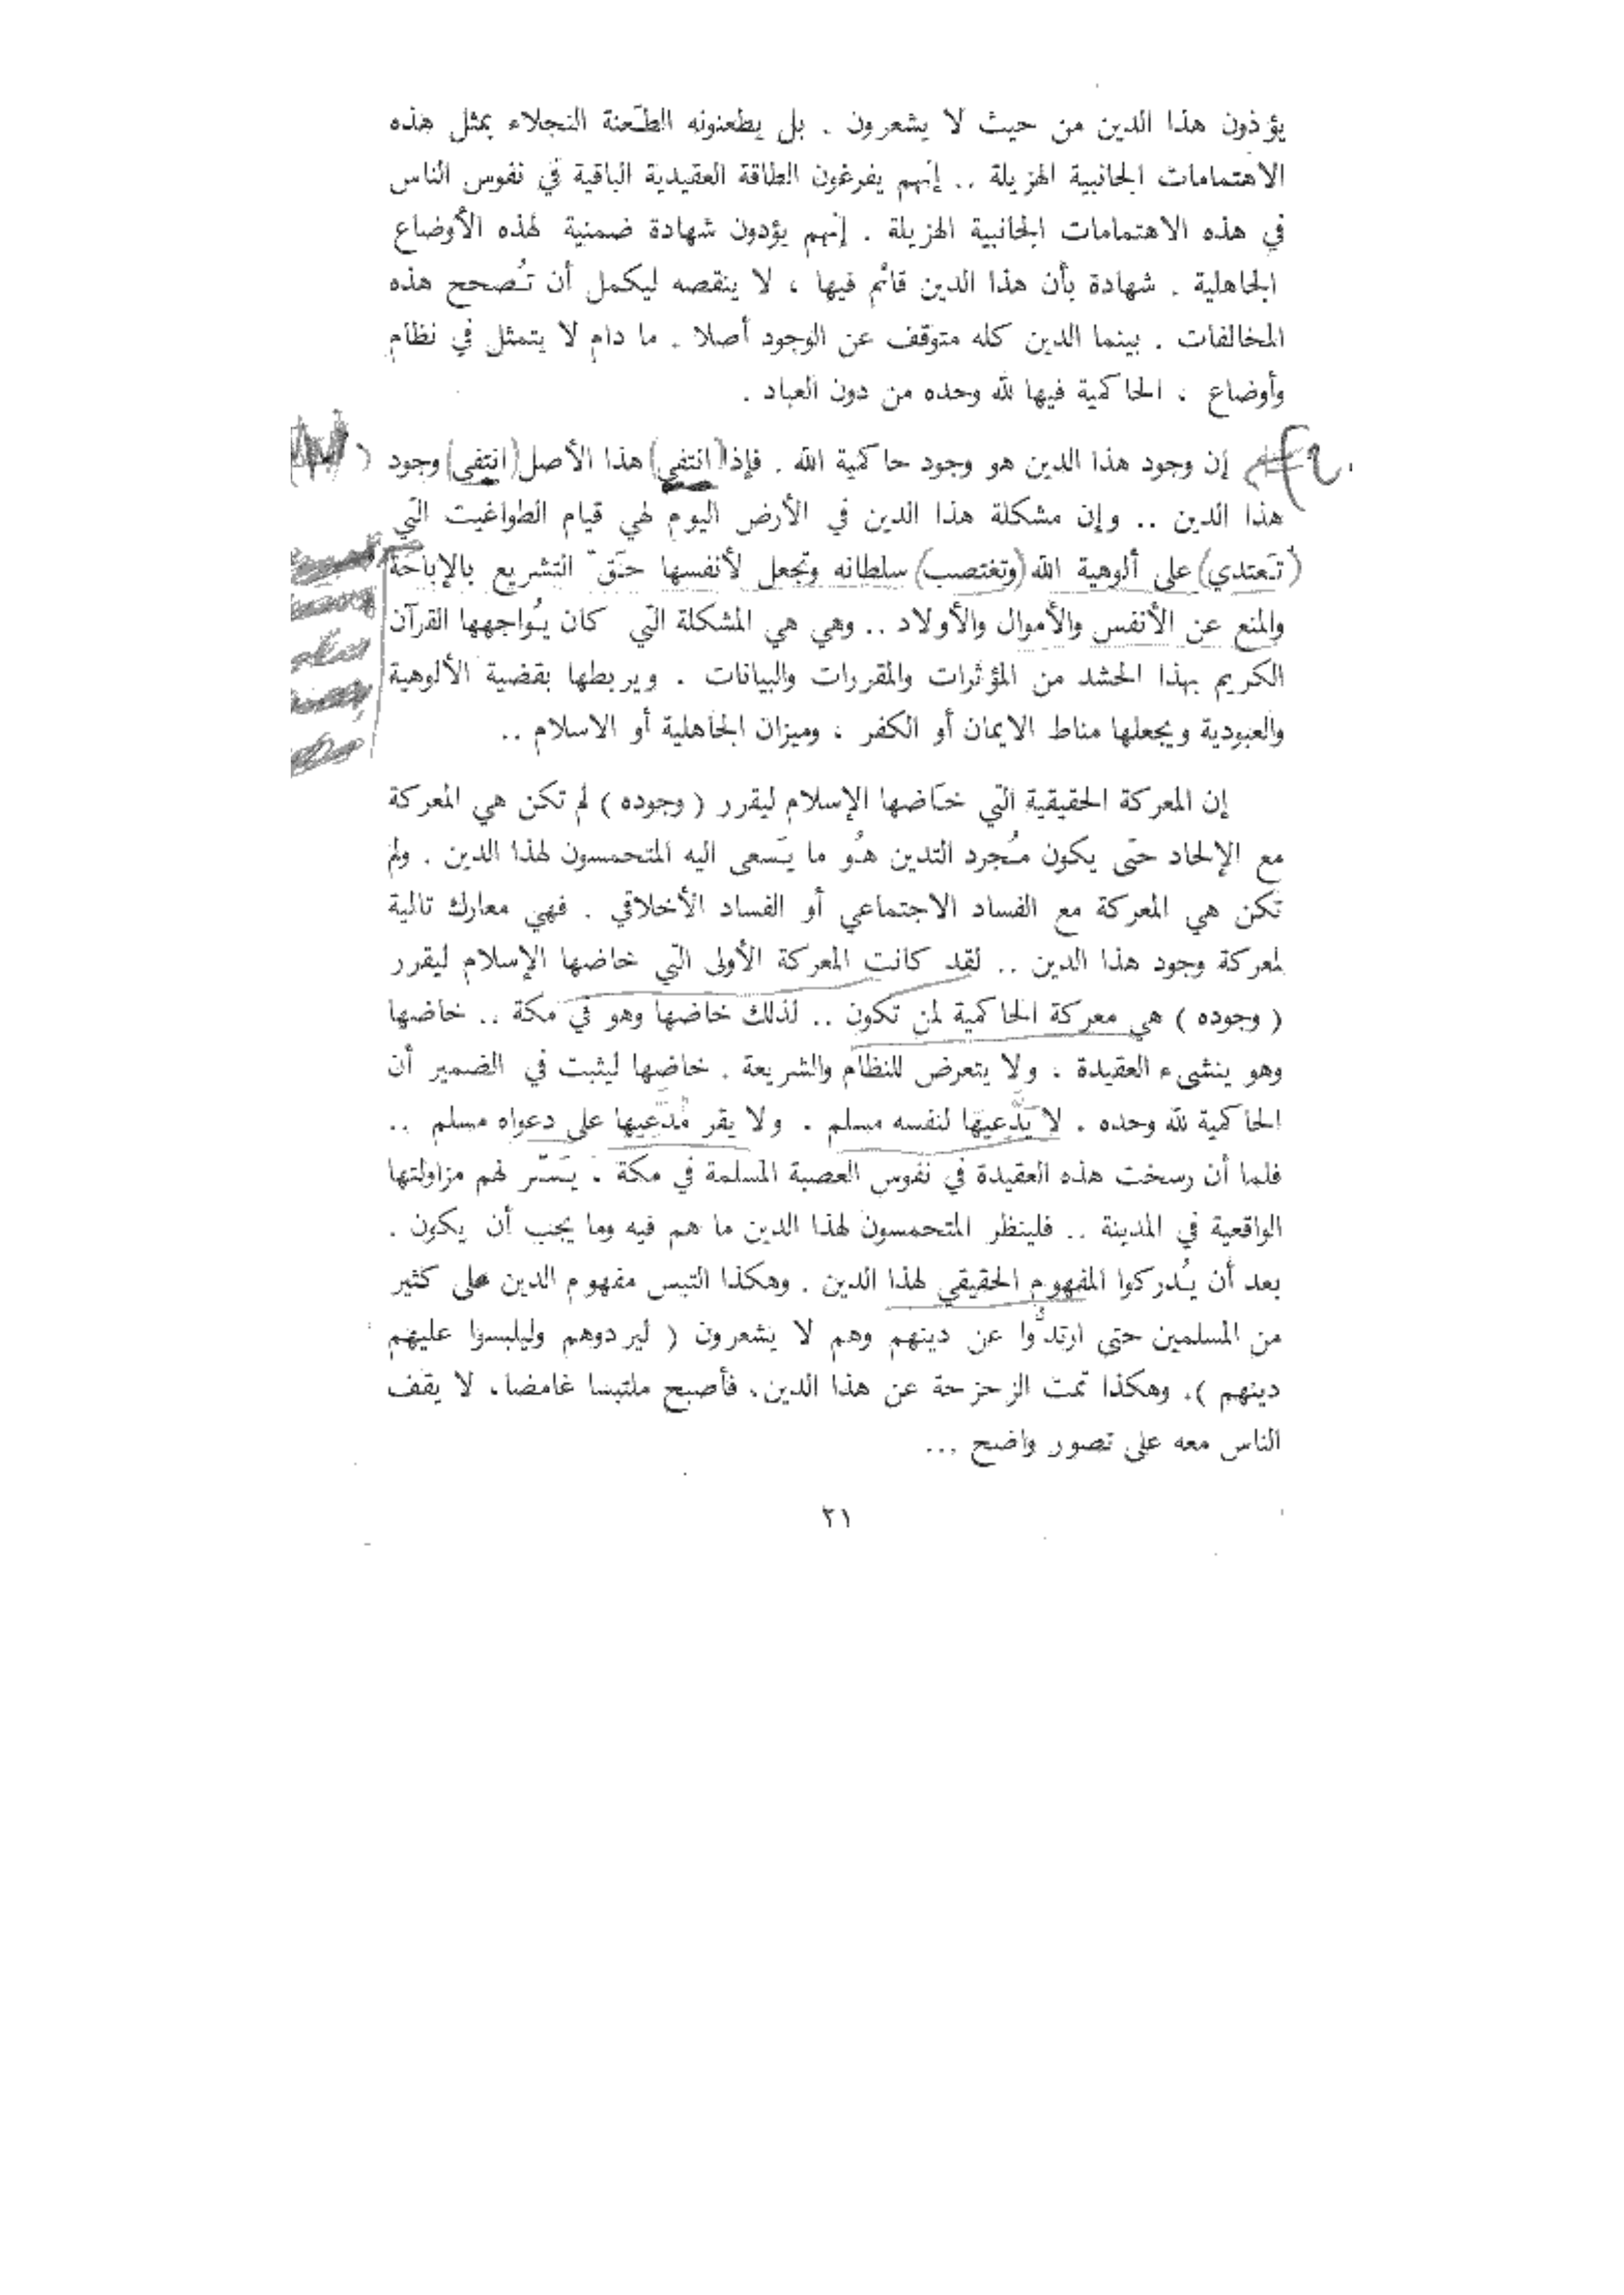 يؤذون هذا الدين من حيث لا يشعرون . بل يطعنونه الطّعنة النجلاء بمثل هذه
الاهتمامات الجانبية الهزيلة .. إنهم يفرغون الطاقة العقيدية الباقية في نفوس الناس
في هذه الاهتمامات الجانبية الهزيلة . إنهم يؤدون شهادة ضمنية لهذه الأوضاع
الجاهلية . شهادة بأن هذا الدين قائم فيها ، لا ينقصه ليكمل أن تُصحح هذه
المخالفات . بينما الدين كله متوقف عن الوجود أصلا . ما دام لا يتمثل في نظام
وأوضاع ، الحاكمية فيها لله وحده من دون العباد .
إن وجود هذا الدين هو وجود حاكمية الله . فإذا (انتفى) هذا الأصل (انتفى) وجود
هذا الدين .. وإن مشكلة هذا الدين في الأرض اليوم لهي قيام الطواغيت التي
(تَعتدي) على ألوهية الله (وتغتصب) سلطانه وتجعل لأنفسها حَقّ التشريع بالإباحة
والمنع عن الأنفس والأموال والأولاد .. وهي هي المشكلة التي كان يُواجهها القرآن
الكريم بهذا الحشد من المؤثرات والمقررات والبيانات . ويربطها بقضية الألوهية
والعبودية ويجعلها مناط الايمان أو الكفر ، وميزان الجاهلية أو الاسلام ..
إن المعركة الحقيقية التي خَاضها الإسلام ليقرر ( وجوده ) لم تكن هي المعركة
مع الإلحاد حتى يكون مُجرد التدين هُو ما يَسعى اليه المتحمسون لهذا الدين . ولم
تكن هي المعركة مع الفساد الاجتماعي أو الفساد الأخلاقي . فهي معارك تالية
لمعركة وجود هذا الدين .. لقد كانت المعركة الأولى التي خاضها الإسلام ليقرر
( وجوده ) هي معركة الحاكمية لمن تكون .. لذلك خاضها وهو في مكة .. خاضها
وهو ينشىء العقيدة ، ولا يتعرض للنظام والشريعة . خاضها ليثبت في الضمير أن
الحاكمية لله وحده . لا يَدّعيها لنفسه مسلم . ولا يقر مُدّعيها على دعواه مسلم ..
فلما أن رسخت هذه العقيدة في نفوس العصبة المسلمة في مكة . يَسّر لهم مزاولتها
الواقعية في المدينة .. فلينظر المتحمسون لهذا الدين ما هم فيه وما يجب أن يكون .
بعد أن يُدركوا المفهوم الحقيقي لهذا الدين . وهكذا التبس مفهوم الدين على كثير
من المسلمين حتى ارتدُّوا عن دينهم وهم لا يشعرون ( ليردوهم وليلبسوا عليهم
دينهم ). وهكذا تمت الزحزحة عن هذا الدين. فأصبح ملتبسا غامضا، لا يقف
الناس معه على تصور واضح ...
٢١